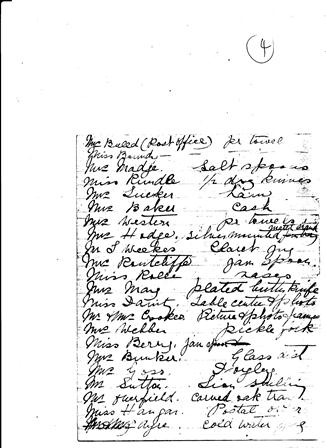 4
Mr Baled (Post Office) pr towel
Miss Bound
Mrs Madge Salt spoons
Miss Rundle ½ doz knives
Mrs Tucker
Mrs Baker Cash
Mrs Western pr towels
Mr Hodge, silver mounted
M S Weekes Claret Jug
Mr Rowtcliffe Jam Spoon
Miss Rolle vases
Mrs May plated butter knife
Miss Daint, Table centre & photo
Mr & Mrs Cooker Picture & photo frames
Mrs Webber Pickle fork
Miss Berry, jam spoon
Mrs Bunker. Glass dish
Mrs Goss. Doyleys
Mr Sutton
Mr Overfield. Carved oak tray
Miss Hangar Postal order
Ayre. Cold water jug